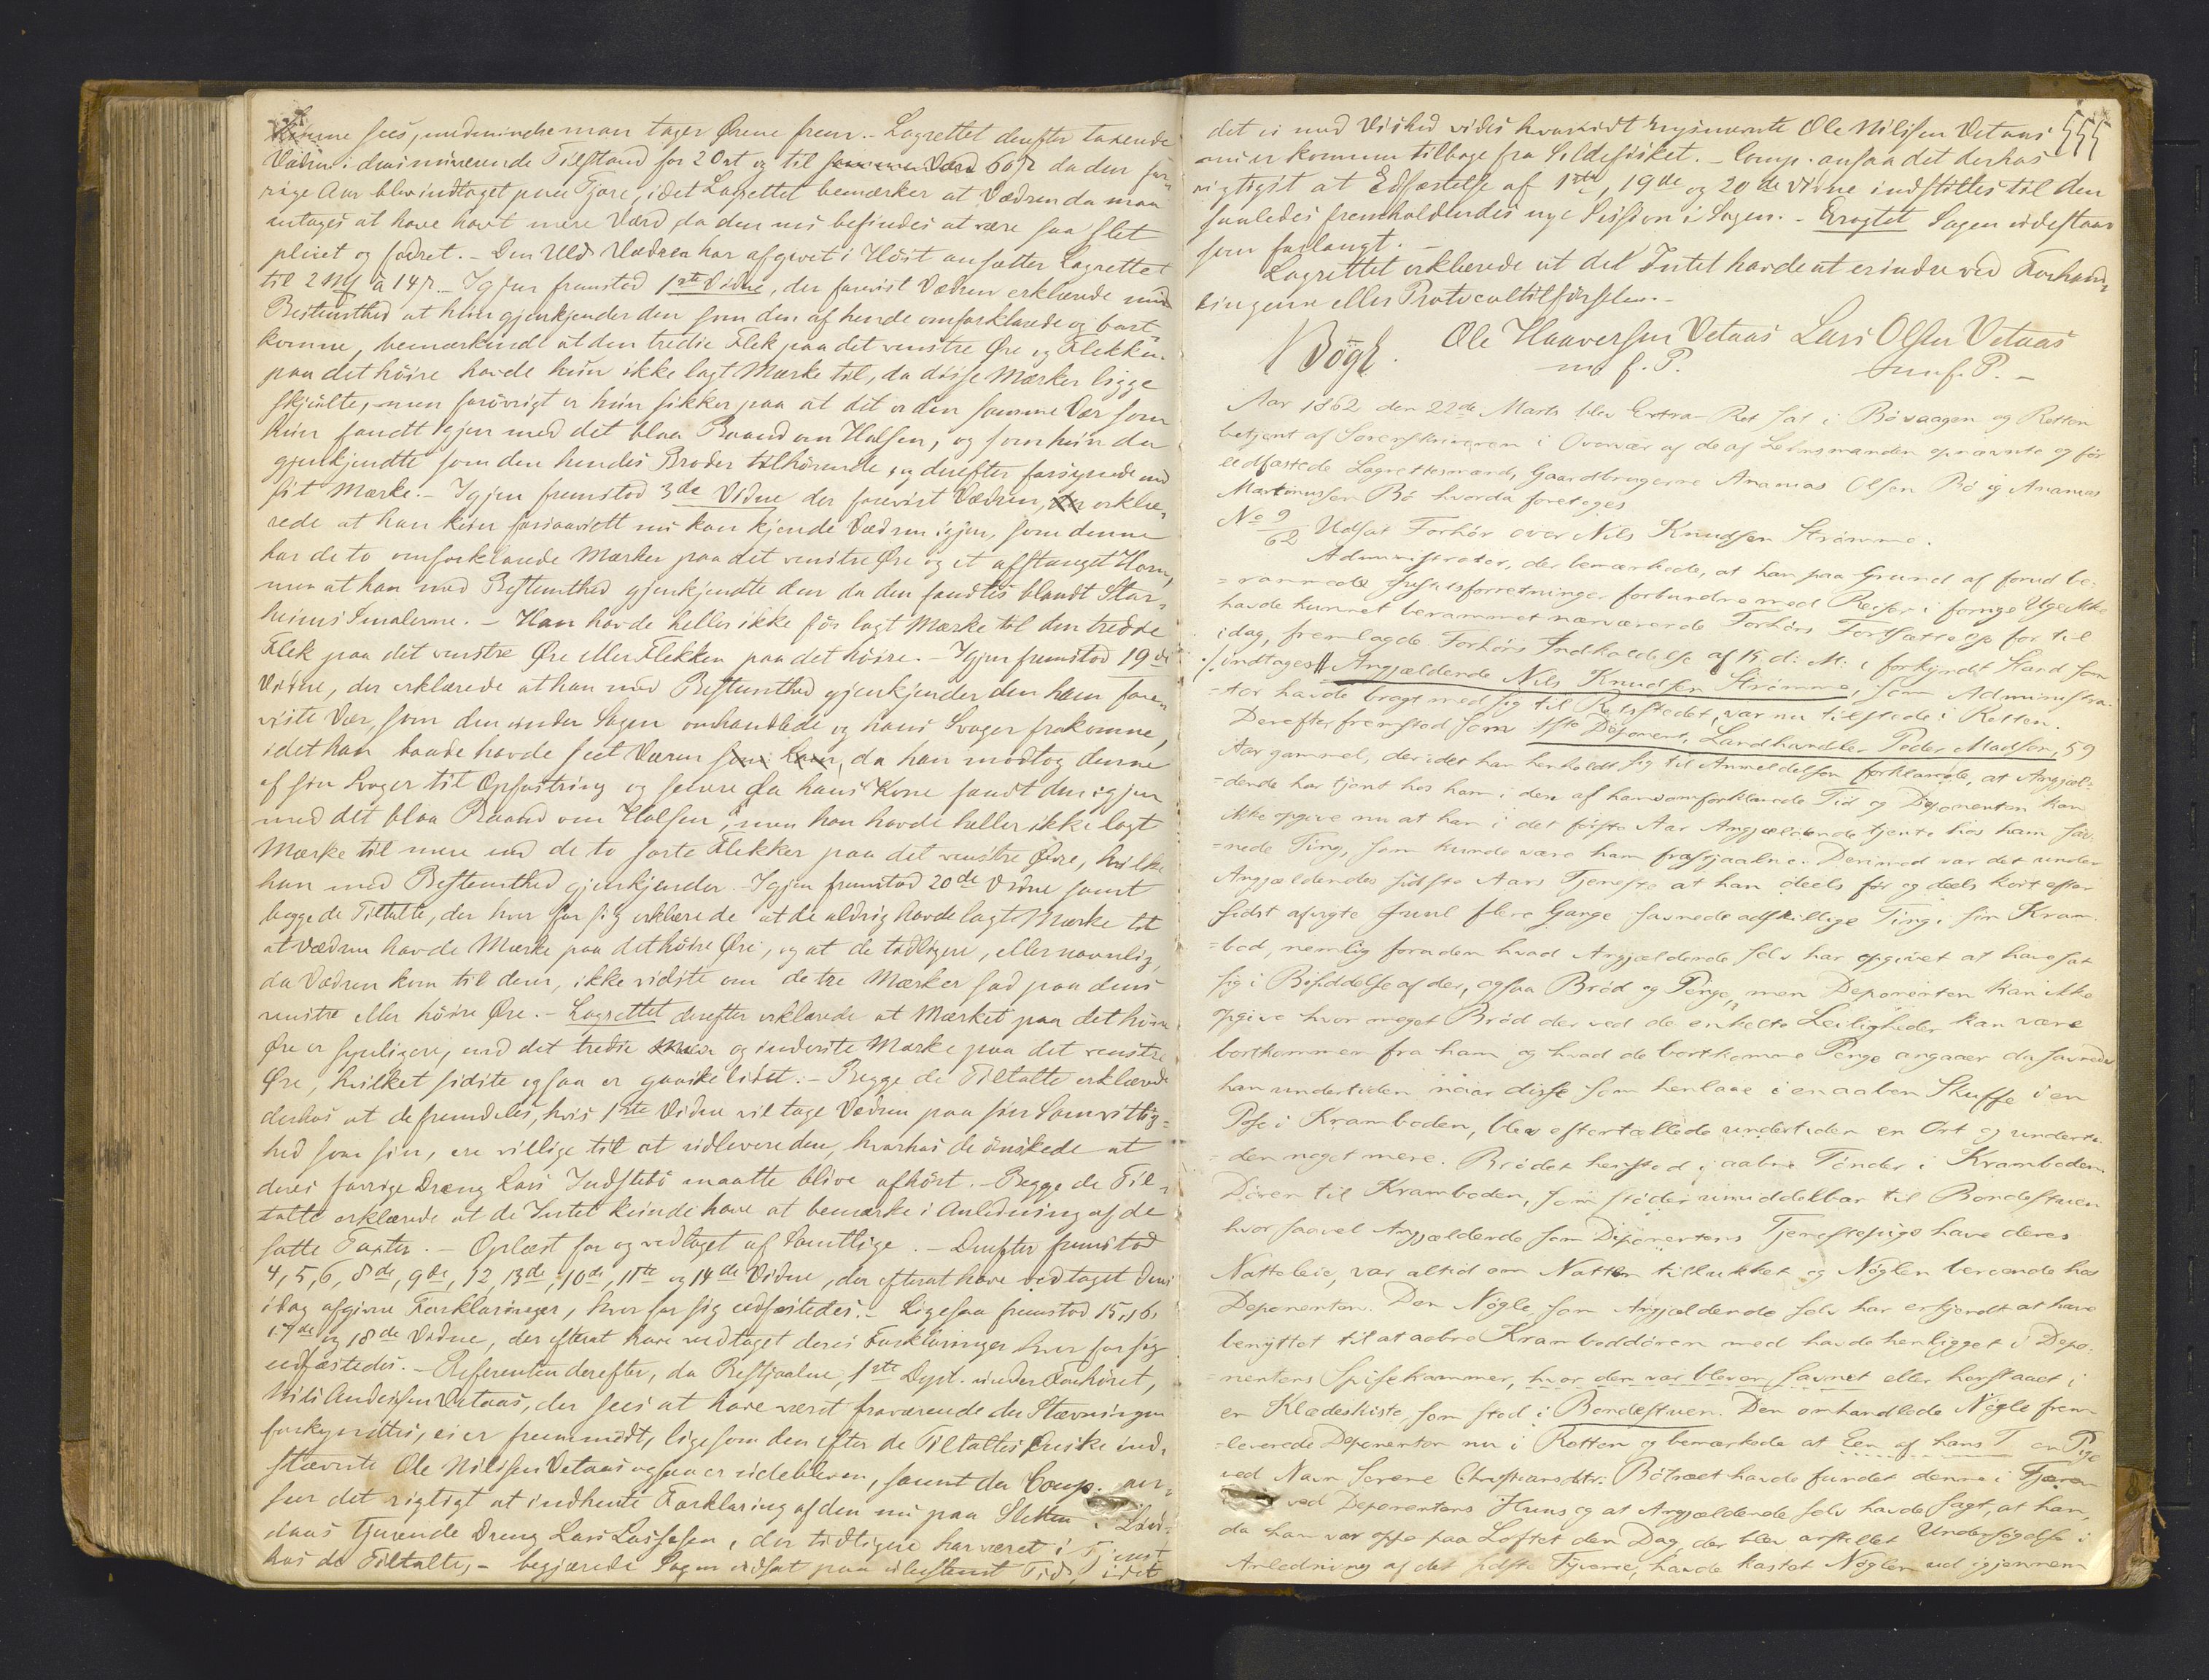 kunne sees, medmindre man tager Ørene frem. - Lagrettet derefter taxerede
Væderen i dens nuværende Tilstand for 2 Ort og til 60 ß da den for-
rige Aar blev indtaget paa Fjøre, idet Lagrettet bemærker at Væderen da maa
antages at have havt mere Værd, da den nu befindes at være saa slet
pleiet og fodret. - Den Uld Væderen har afgivet i Høst ansætter Lagrettet
til 2 Mk à 14 ß. - Igjen fremstod 1ste Vidne, der forevist Væderen erklærede med
Bestemthed at hun gjenkjender den som den af hende omforklarede og bort-
komne, bemærkende at den tredie Flek paa det venstre Øre og Flekken
paa det høire havde hun ikke lagt Mærke til, da disse Mærker ligge
skjulte, men forøvrigt er hun sikker paa at det er den samme Vær som
hun fandt igjen med det blaa Baand om Halsen, og som hun da
gjenkjendte som den hendes Broder tilhørende og derefter forsynede med
sit Mærke. - Igjen fremstod 3de Vidne der forevist Væderen, erklæ-
rede at han kun forsaavidt nu kan kjende Væderen igjen, som denne
har de to omforklarede Mærker paa det venstre Øre og et afstanget Horn,
men at han med Bestemthed gjenkjendte den da den fandtes blandt Stur-
heims Smalerne. - Han havde heller ikke før lagt Mærke til den tredie
Flek paa det venstre Øre eller Flekken paa det høire. - Igjen fremstod 19de
Vidne, der erklærede at han med Bestemthed gjenkjender den ham fore-
viste Vær, som den under Sagen omhandlede og hans Svoger frakomne,
idet han baade havde seet Væren da han modtog denne
af sin Svoger til Opfostring og senere da hans Kone fandt den igjen
med det blaa Baand om Halsen, men han havde heller ikke lagt
Mærke til mere end de to sorte Flekker paa det venstre Øre, hvilke
han med Bestemthed gjenkjender. Igjen fremstod 20de Vidne samt
begge de Tiltalte, der hver for sig erklærede at de aldrig havde lagt Mærke til
at Væderen havde Mærke paa det høire Øre, og at de tidligere, eller navnlig
da Væderen kom til dem, ikke vidste om de tre Mærker sad paa dens
venstre eller høire Øre. - Lagrettet derefter erklærede at Mærket paa det høire
Øre er synligere, end det tredie og inderste Mærke paa det venstre
Øre, hvilket sidste ogsaa er ganske lidet. - Begge de Tiltalte erklærede
derhos at de fremdeles, hvis 1ste Vidne vil tage Væderen paa sin Samvittig-
hed som sin, ere villige til at udlevere den, hvorhos de ønskede at
deres forrige Dreng Lars Indstebø maatte blive afhørt. - Begge de Til-
talte erklærede at de Intet kunde have at bemærke i Anledning af de
satte Taxter. - Oplæst for og vedtaget af Samtlige. - Derefter fremstod
4, 5, 6, 8de, 9de, 12, 13de, 10de, 11te og 14de Vidne, der efterat have vedtaget deres
idag afgivne Forklaringer, hver for sig eedfæstedes. - Ligesaa fremstod 15, 16,
17de og 18de Vidne, der efterat have vedtaget deres Forklaringer hver for sig
eedfæstedes. - Referenten derefter, da Bestjaalne, 1ste Dept. under Forhøret,
Nils Andersen Vetaas, der sees at have været fraværende da Stævningen
forkyndtes, ei er fremmødt, ligesom den efter de Tiltaltes Ønske ind-
stævnte Ole Nilssen Vetaas ogsaa er udebleven, samt da Comp. an-
seer det rigtigt at indhente Forklaring af den nu paa Sletten i Lind-
aas tjenende Dreng Lars Lassesen, der tidligere har været i Tjenst
hos de Tiltalte, - begjærede Sagen udsat paa ubestemt Tid, idet
555
det ei med Vished vides hvorvidt Ensnævnte Ole Nilssen Vetaas
nu er kommen tilbage fra Sildefisket. - Comp. ansaa det derhos
rigtigst at Edfæstelse af 1ste, 19de og 20de Vidne indstilles til den
saaledes fremholdendes nye Session i Sagen. - Eragtet Sagen udestaar
som forlangt. -
Lagrettet erklærede at det Intet havde at erindre ved Forhand-
lingerne eller Protocoltilførslen. -
Bøgh. Ole Haaversen Vetaas Lars Olsen Vetaas
m. f. P. m. f. P. -
Aar 1862 den 22de Marts blev Extra-Ret sat i Bøvaagen og Retten
betjent af Sorenskriveren i Overvær af de af Lehnsmanden opnævnte og før
eedfæstede Lagrettesmænd, Gaardbrugerne Ananias Olsen Bø og Ananias
Martinussen Bø hvorda foretoges
No 9/62 Udsat Forhør over Nils Knudsen Strømme.
Administrator, der bemærkede, at han paa Grund af forud be-
=rammede forbundne med Reiser i forrige Uge ikke
havde kunnet berammet nærværende Forhørs Fortsættelse før til
idag, fremlagde Forhørs Indkaldelse af 15 d: M: i forkyndt Stand som
./. indtages. Angjældende Nils Knudsen Strømme, som Administra-
=tor havde bragt med sig til Retsstedet, var nu tilstede i Retten.
Derefter fremstod som 1ste Deponent, Landhandler Peder Madsen, 59
Aar gammel, der idet han henholdt sig til Anmeldelsen forklarede, at Angjæl-
=dende har tjent hos ham i den af ham omforklarede Tid og Deponenten kan
ikke opgive nu at han i det første Aar Angjældende tjente hos ham sav-
=nede Ting, som kunde være ham frastjaalne. Derimod var det under
Angjældendes sidste Aars Tjeneste at han deels før og deels kort efter
sidst afvigte Juul flere Gange savnede adskillige Ting i sin Kram-
=bod, nemlig foruden hvad Angjældende selv har opgivet at have sat
sig i Besiddelse af der, ogsaa Brød og Penge, men Deponenten kan ikke
opgive hvor meget Brød der ved de enkelte Leiligheder kan være
bortkommen fra ham og hvad de bortkomne Penge angaaer da savnede
han undertiden naar disse som henlaae i en aaben Skuffe i en
Pose i Kramboden, blev eftertællede undertiden en Ort og underti-
=den noget mere. Brødet henstod i aabne Tønder i Kramboden
Døren til Kramboden, som støder umiddelbar til Bondestuen
hvor saavel Angjældende som Deponentens Tjenestepige have deres
Natteleie, var altid om Natten tillukket og Nøglen beroende hos
Deponenten. Den Nøgle, som Angjældende selv har erkjendt at have
benyttet til at aabne Krambøddøren med havde henligget i Depo-
=nentens Spisekammer, hvor den var bleven savnet eller henstaaet i
en Klædeskiste som stod i Bondestuen. Den omhandlede Nøgle frem-
=leverede Deponenten nu i Retten og bemærkede at Een af hans T en Pige
ved Navn Serene Christiansdtr. Bøtræet havde fundet denne i Fjæren
ved Deponentens Huus og at Angjældende selv havde sagt, at han,
da han var oppe paa Loftet den Dag, der blev anstillet Undersøgelse i
Anledning af det sidste Tyverie, havde kastet Nøglen ud igjennem